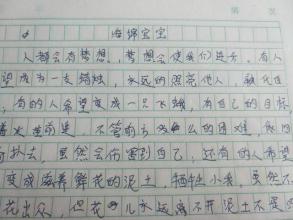 海绵宝宝
人都会有梦想，梦想会使我们进步，有人
望成为一支蜡烛，永远的照亮他人，
，有的人希望变成一只飞蛾，有自己的目标
前进，不管前方多么的困难，
扑去，虽然会伤害到自己，还有的人希望
变成滋养鲜花的泥土，牺牲小我，虽然不
花出众，但花儿永远离不开泥土